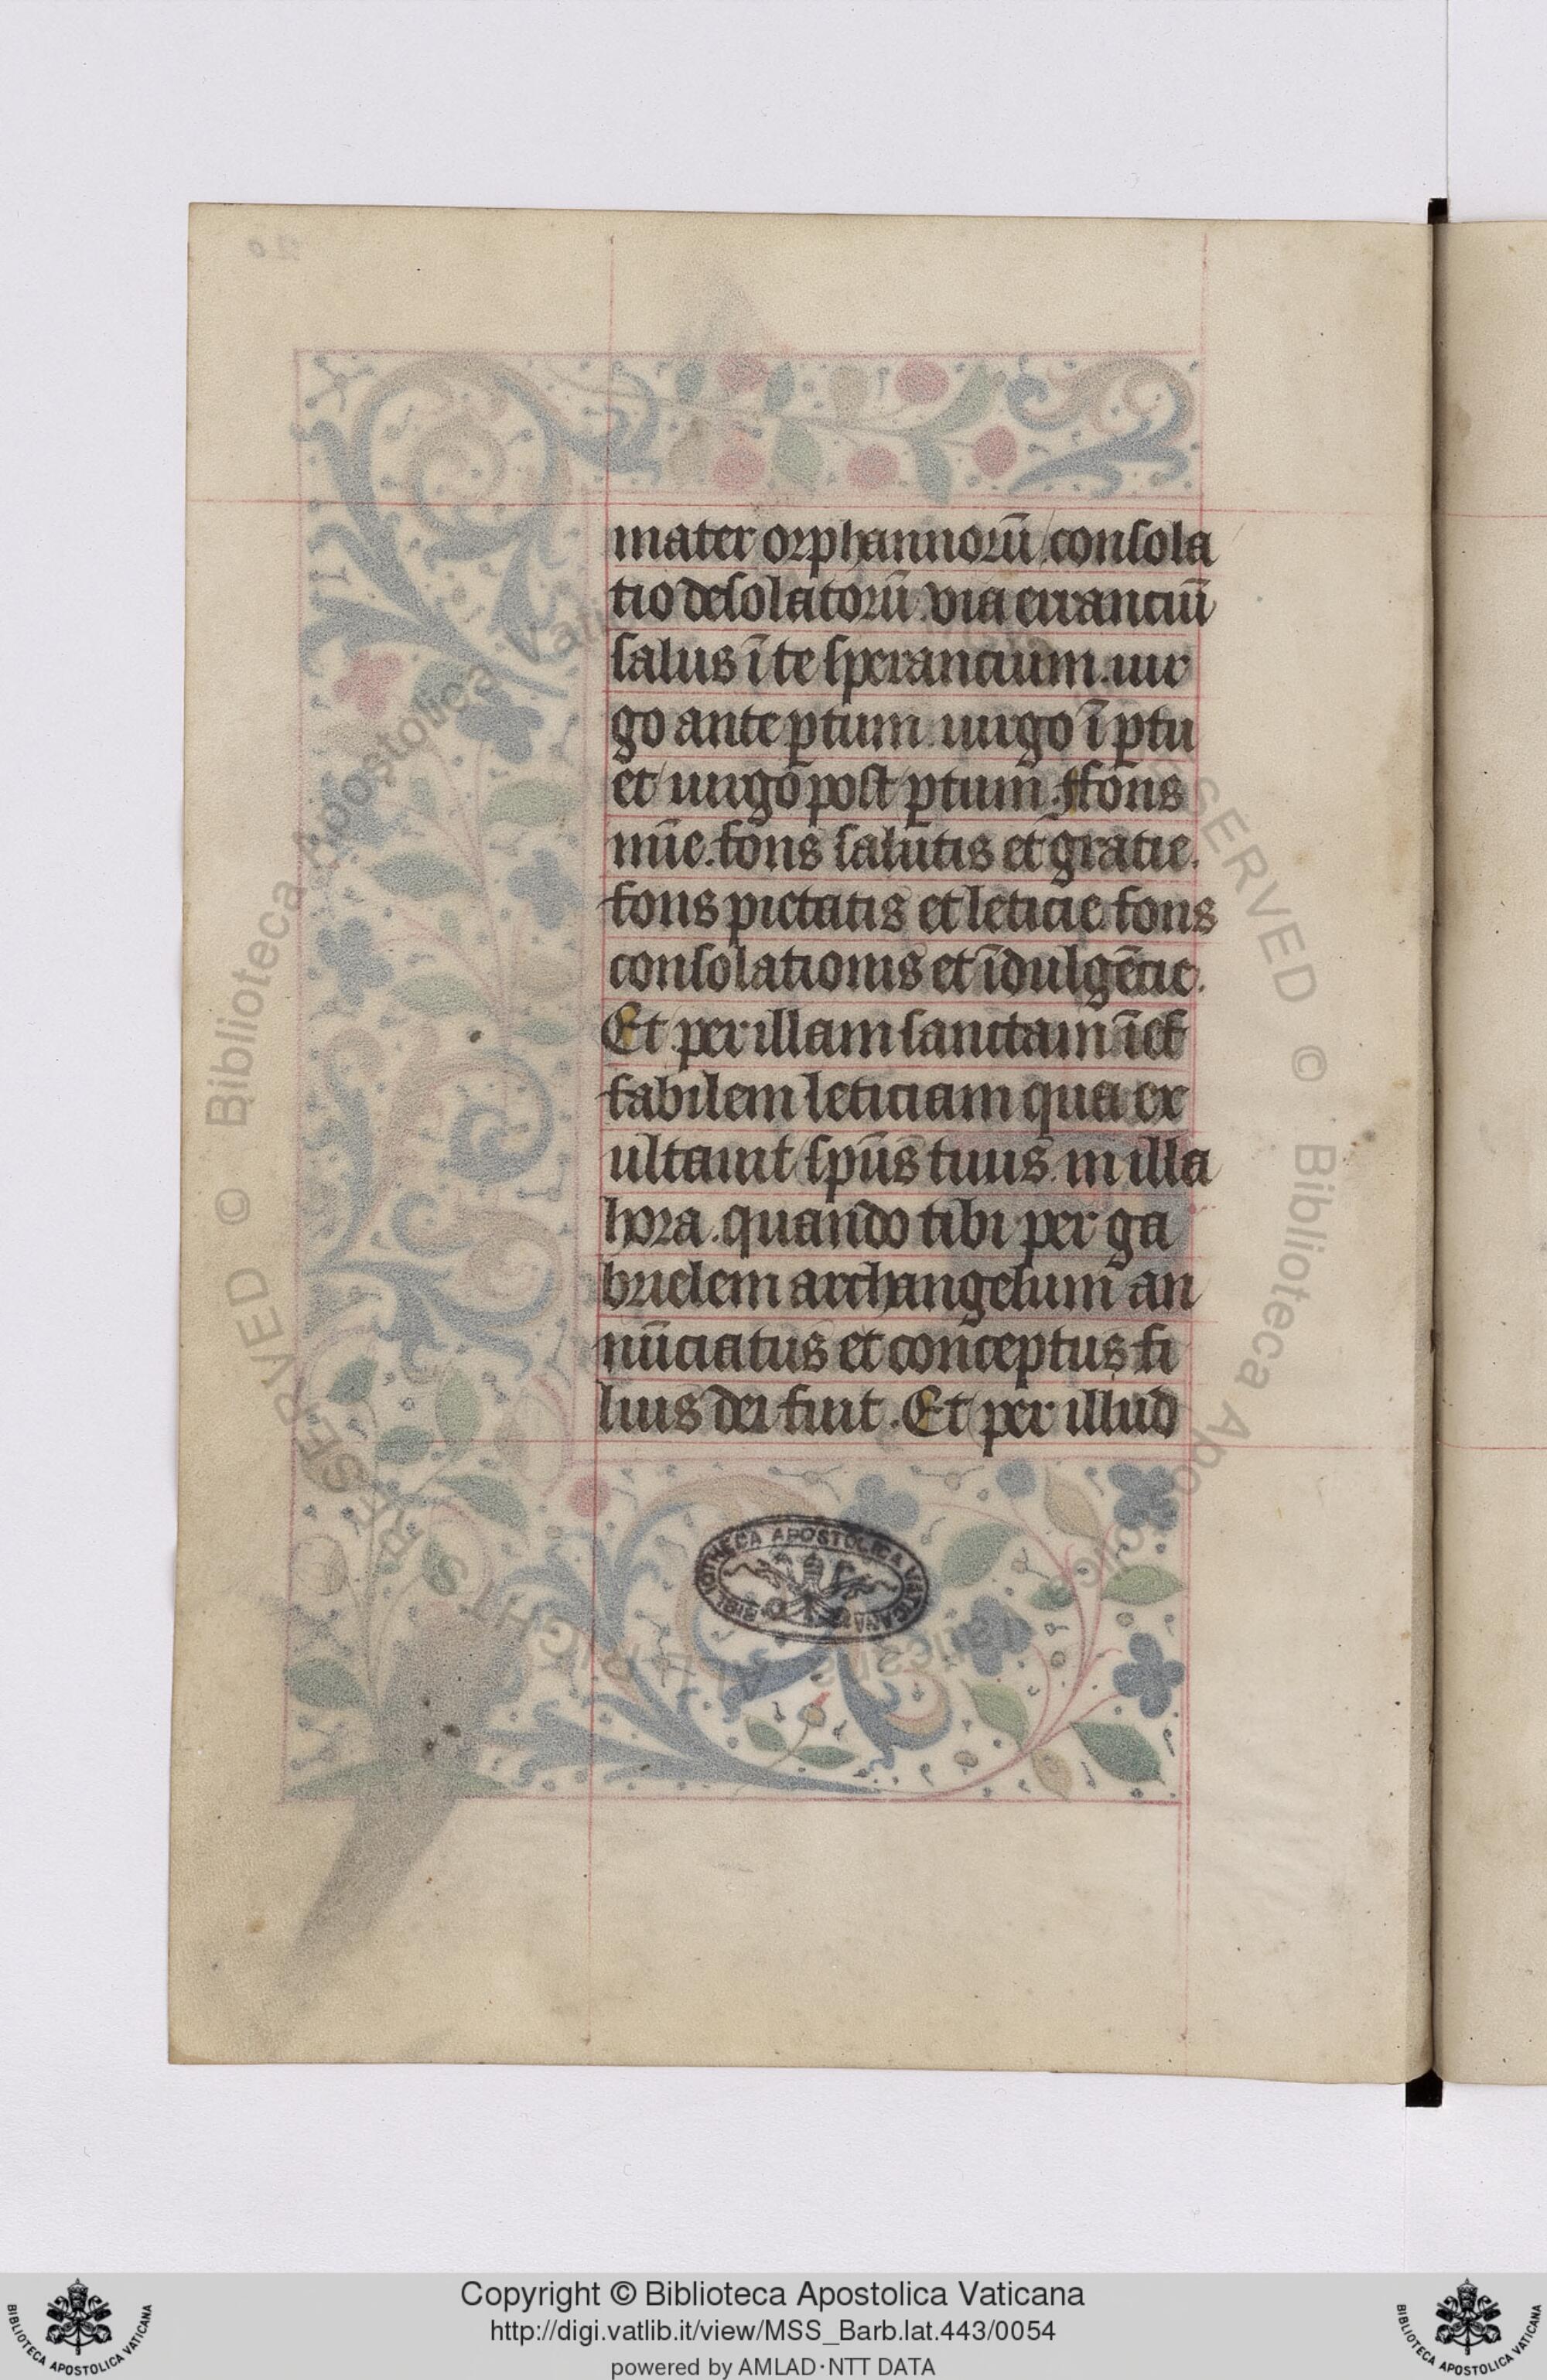 mater orphannoru̅ consola
tio desolatoru̅. via erranciu̅
salus i̅ te sperancium. uir
go ante p̲tum. uirgo i̅ p̲tu
et uirgo post p̲tum. Ffons
mi̅e. fons salutis et gratie.
fons pietatis et leticie. fons
consolationis et i̅dulge̅cie.
Et per illam sanctam i̅ef
fabilem leticiam qua ex
ultauit sp̅us tuus. in illa
hora. quando tibi per ga
brielem archangelum an
nu̅ciatus et conceptus fi
lius dei fuit. Et per illud
BIBLIOTHECA APOSTOLICA VATICANA
© Biblioteca Apostolica Vaticana ALL RIGHTS RESERVED
Copyright © Biblioteca Apostolica Vaticana
http://digi.vatlib.it/view/MSS_Barb.lat.443/0054
powered by AMLAD·NTT DATA
BIBLIOTECA APOSTOLICA VATICANA
BIBLIOTECA APOSTOLICA VATICANA